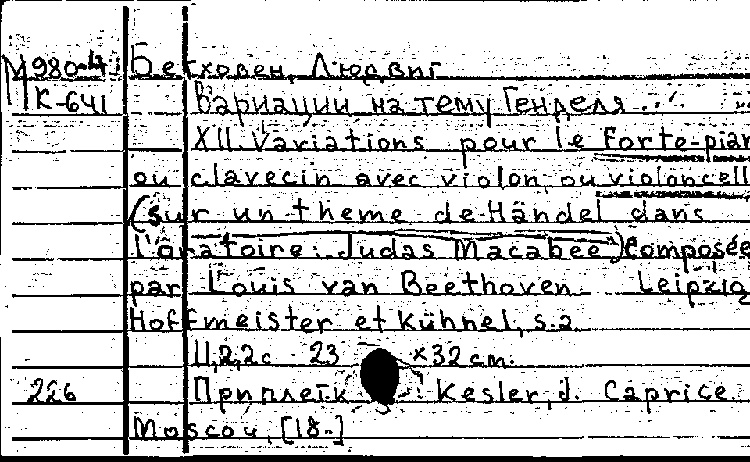 М980-4 Бетховен, Людвиг
К-641 Вариации на тему Генделя...
XII Variations pour le Forte-pian
ou clavecin avec violon, ou violoncell
(sur un theme de Händel dans
l'oratoire: Judas Macabee) Composée
par Louis van Beethoven. Leipzig
Hoffmeister et Kühnel, s.a.
11,2,2 с. 23 x32 cm.
226 Приплетк : Kesler, J. Caprice.
Moscou, [18-]